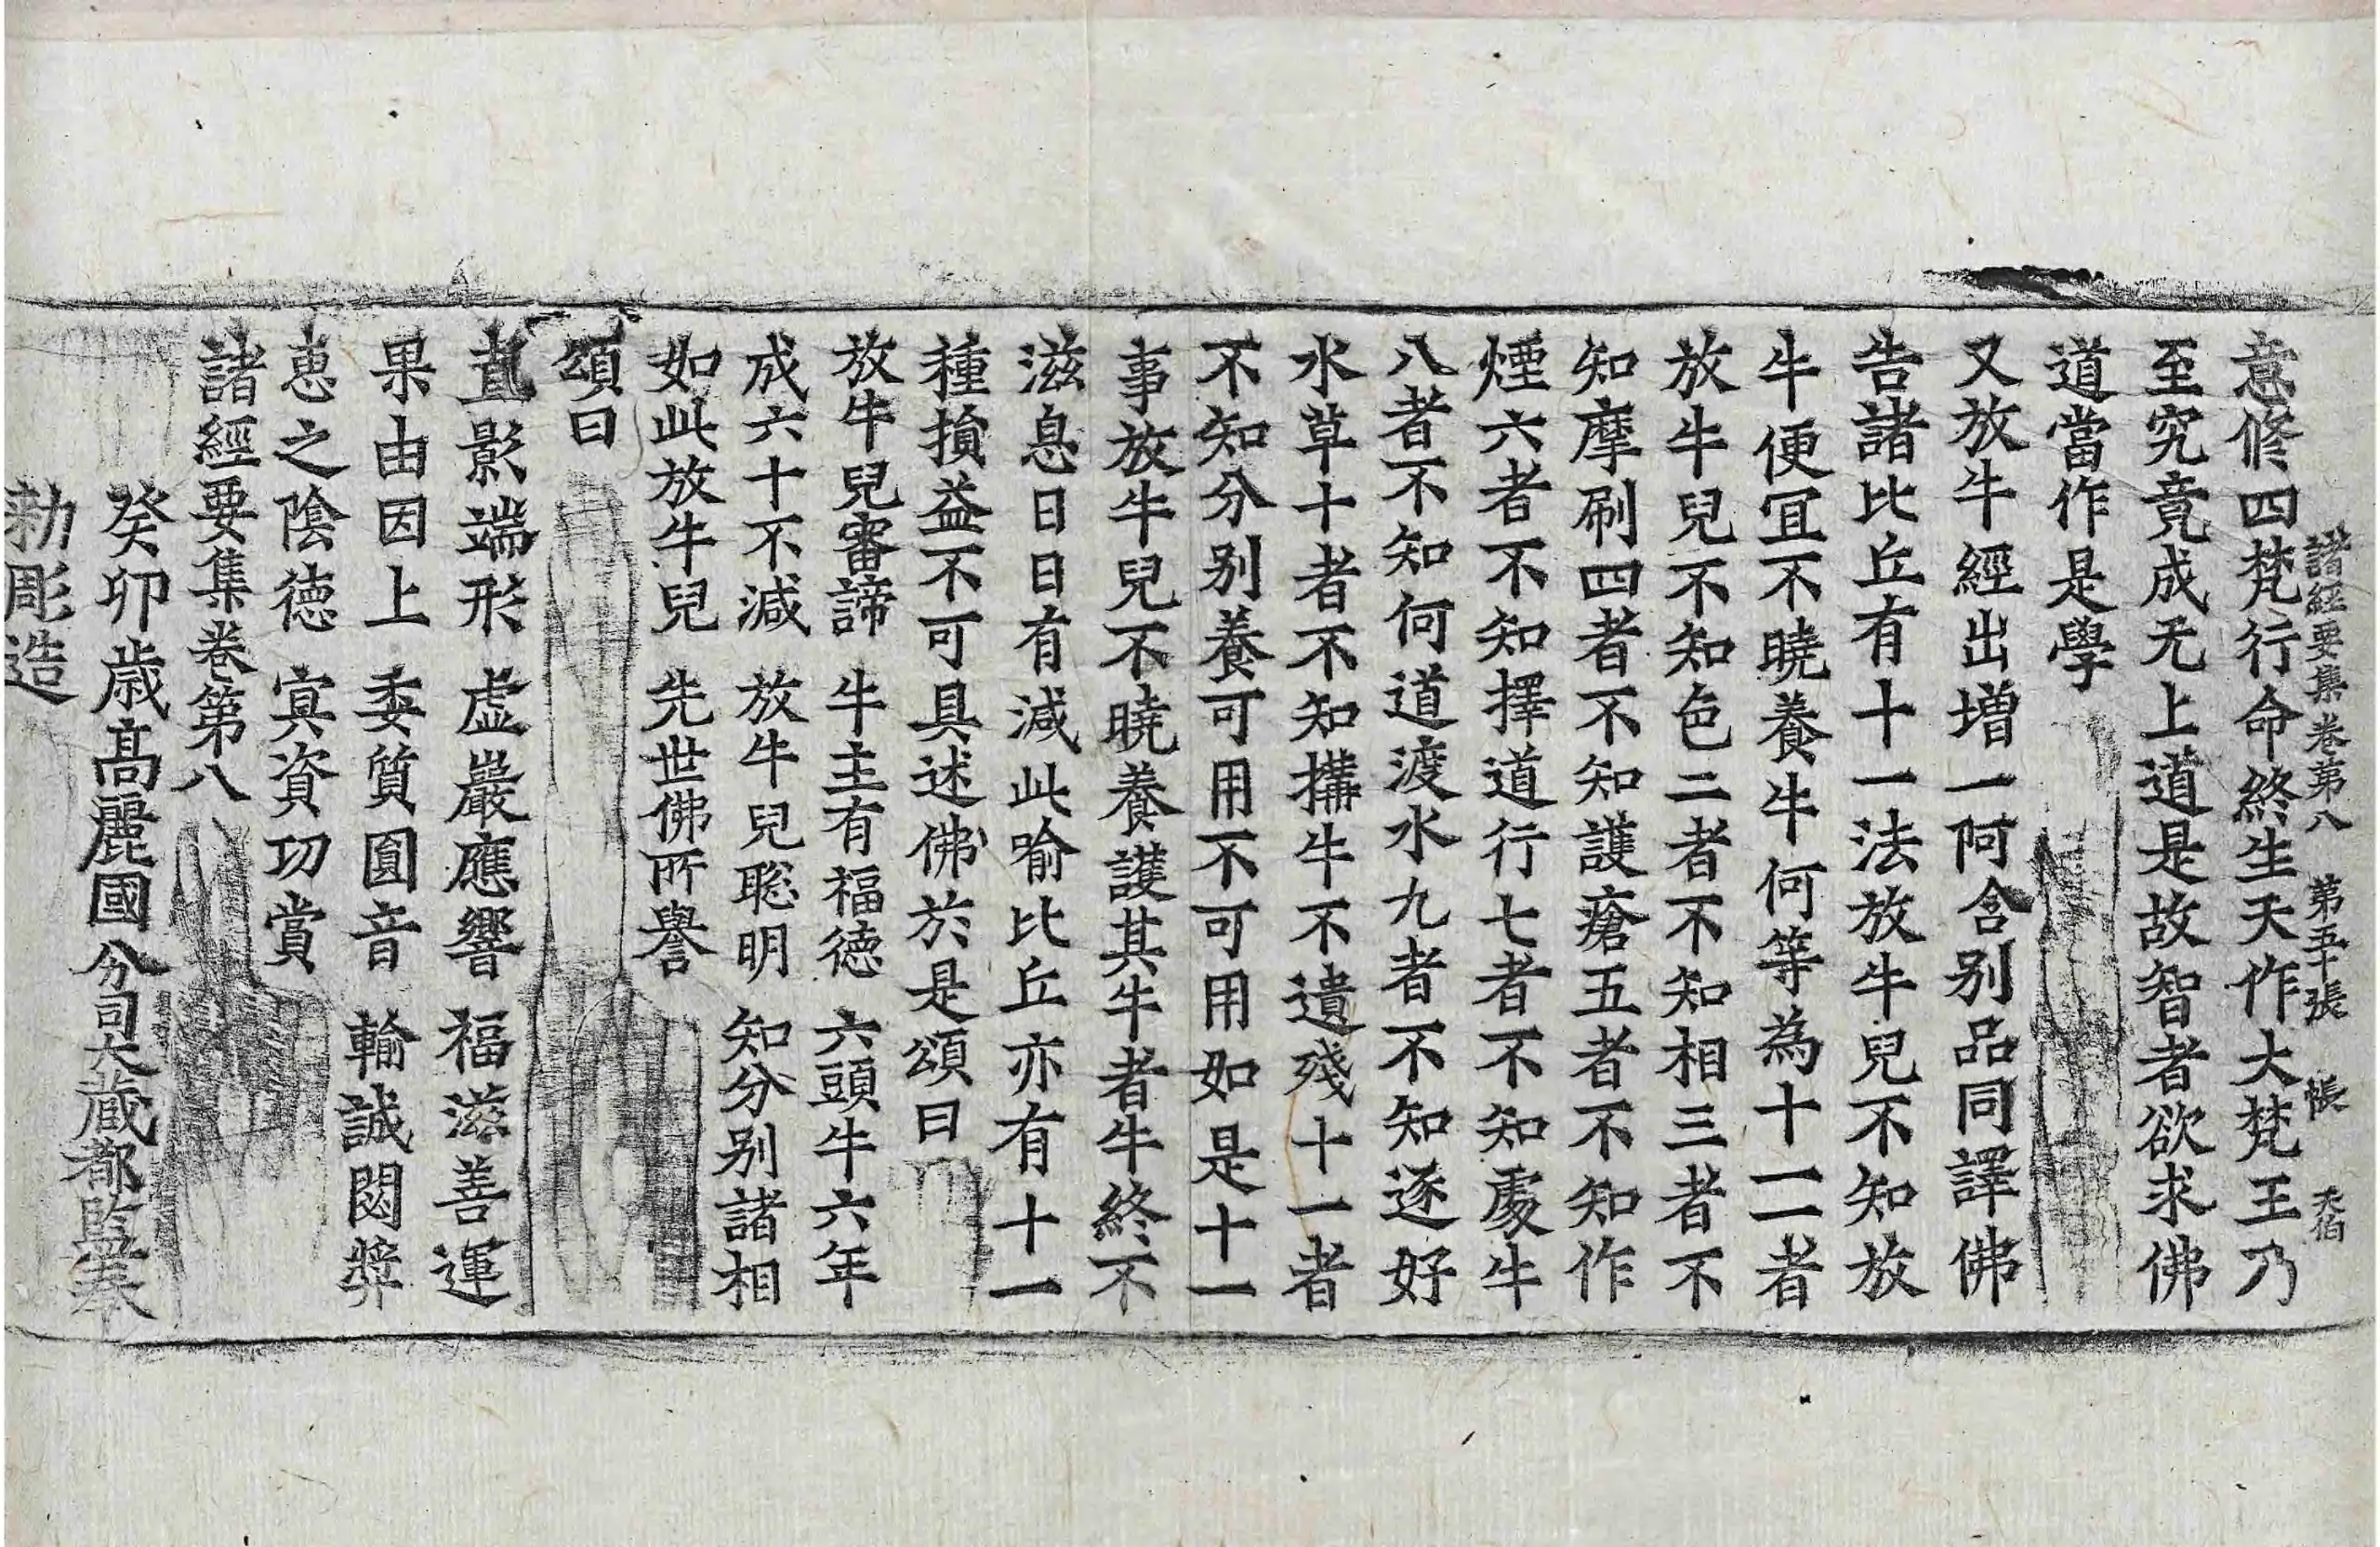 諸經要集卷第八　第五十張　帳　天伯
意修四梵行命終生天作大梵王乃
至究竟成无上道是故智者欲求佛
道當作是學
又放牛經出增一阿含別品同譯佛
告諸比丘有十一法放牛兒不知放
牛便冝不曉養牛何等為十一一者
放牛兒不知色二者不知相三者不
知摩刷四者不知護瘡五者不知作
煙六者不知擇道行七者不知處牛
八者不知何道渡水九者不知逐好
水草十者不知搆牛不遺殘十一者
不知分別養可用不可用如是十一
事放牛兒不曉養護其牛者牛終不
滋息日日有減此喻比丘亦有十一
種損益不可具述佛於是頌曰
放牛兒審諦　牛主有福德　六頭牛六年
成六十不減　放牛兒聡明　知分別諸相
如此放牛兒　先世佛所譽
頌曰
直影端形　虛巖應響　福滋善運
果由因上　委質圓音　輸誠閟㢡
恵之陰德　寘資功賞
諸經要集卷第八
癸卯歳高麗國分司大蔵都監奉
勑彫造